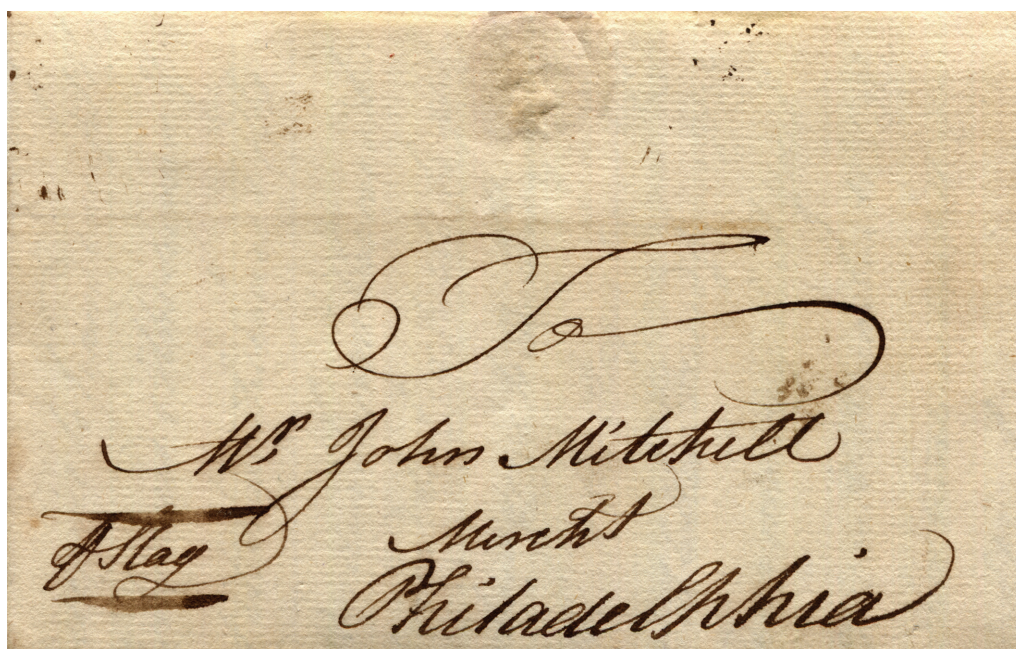 To
Mr. John Mitchell
Mercht
Philadelphia